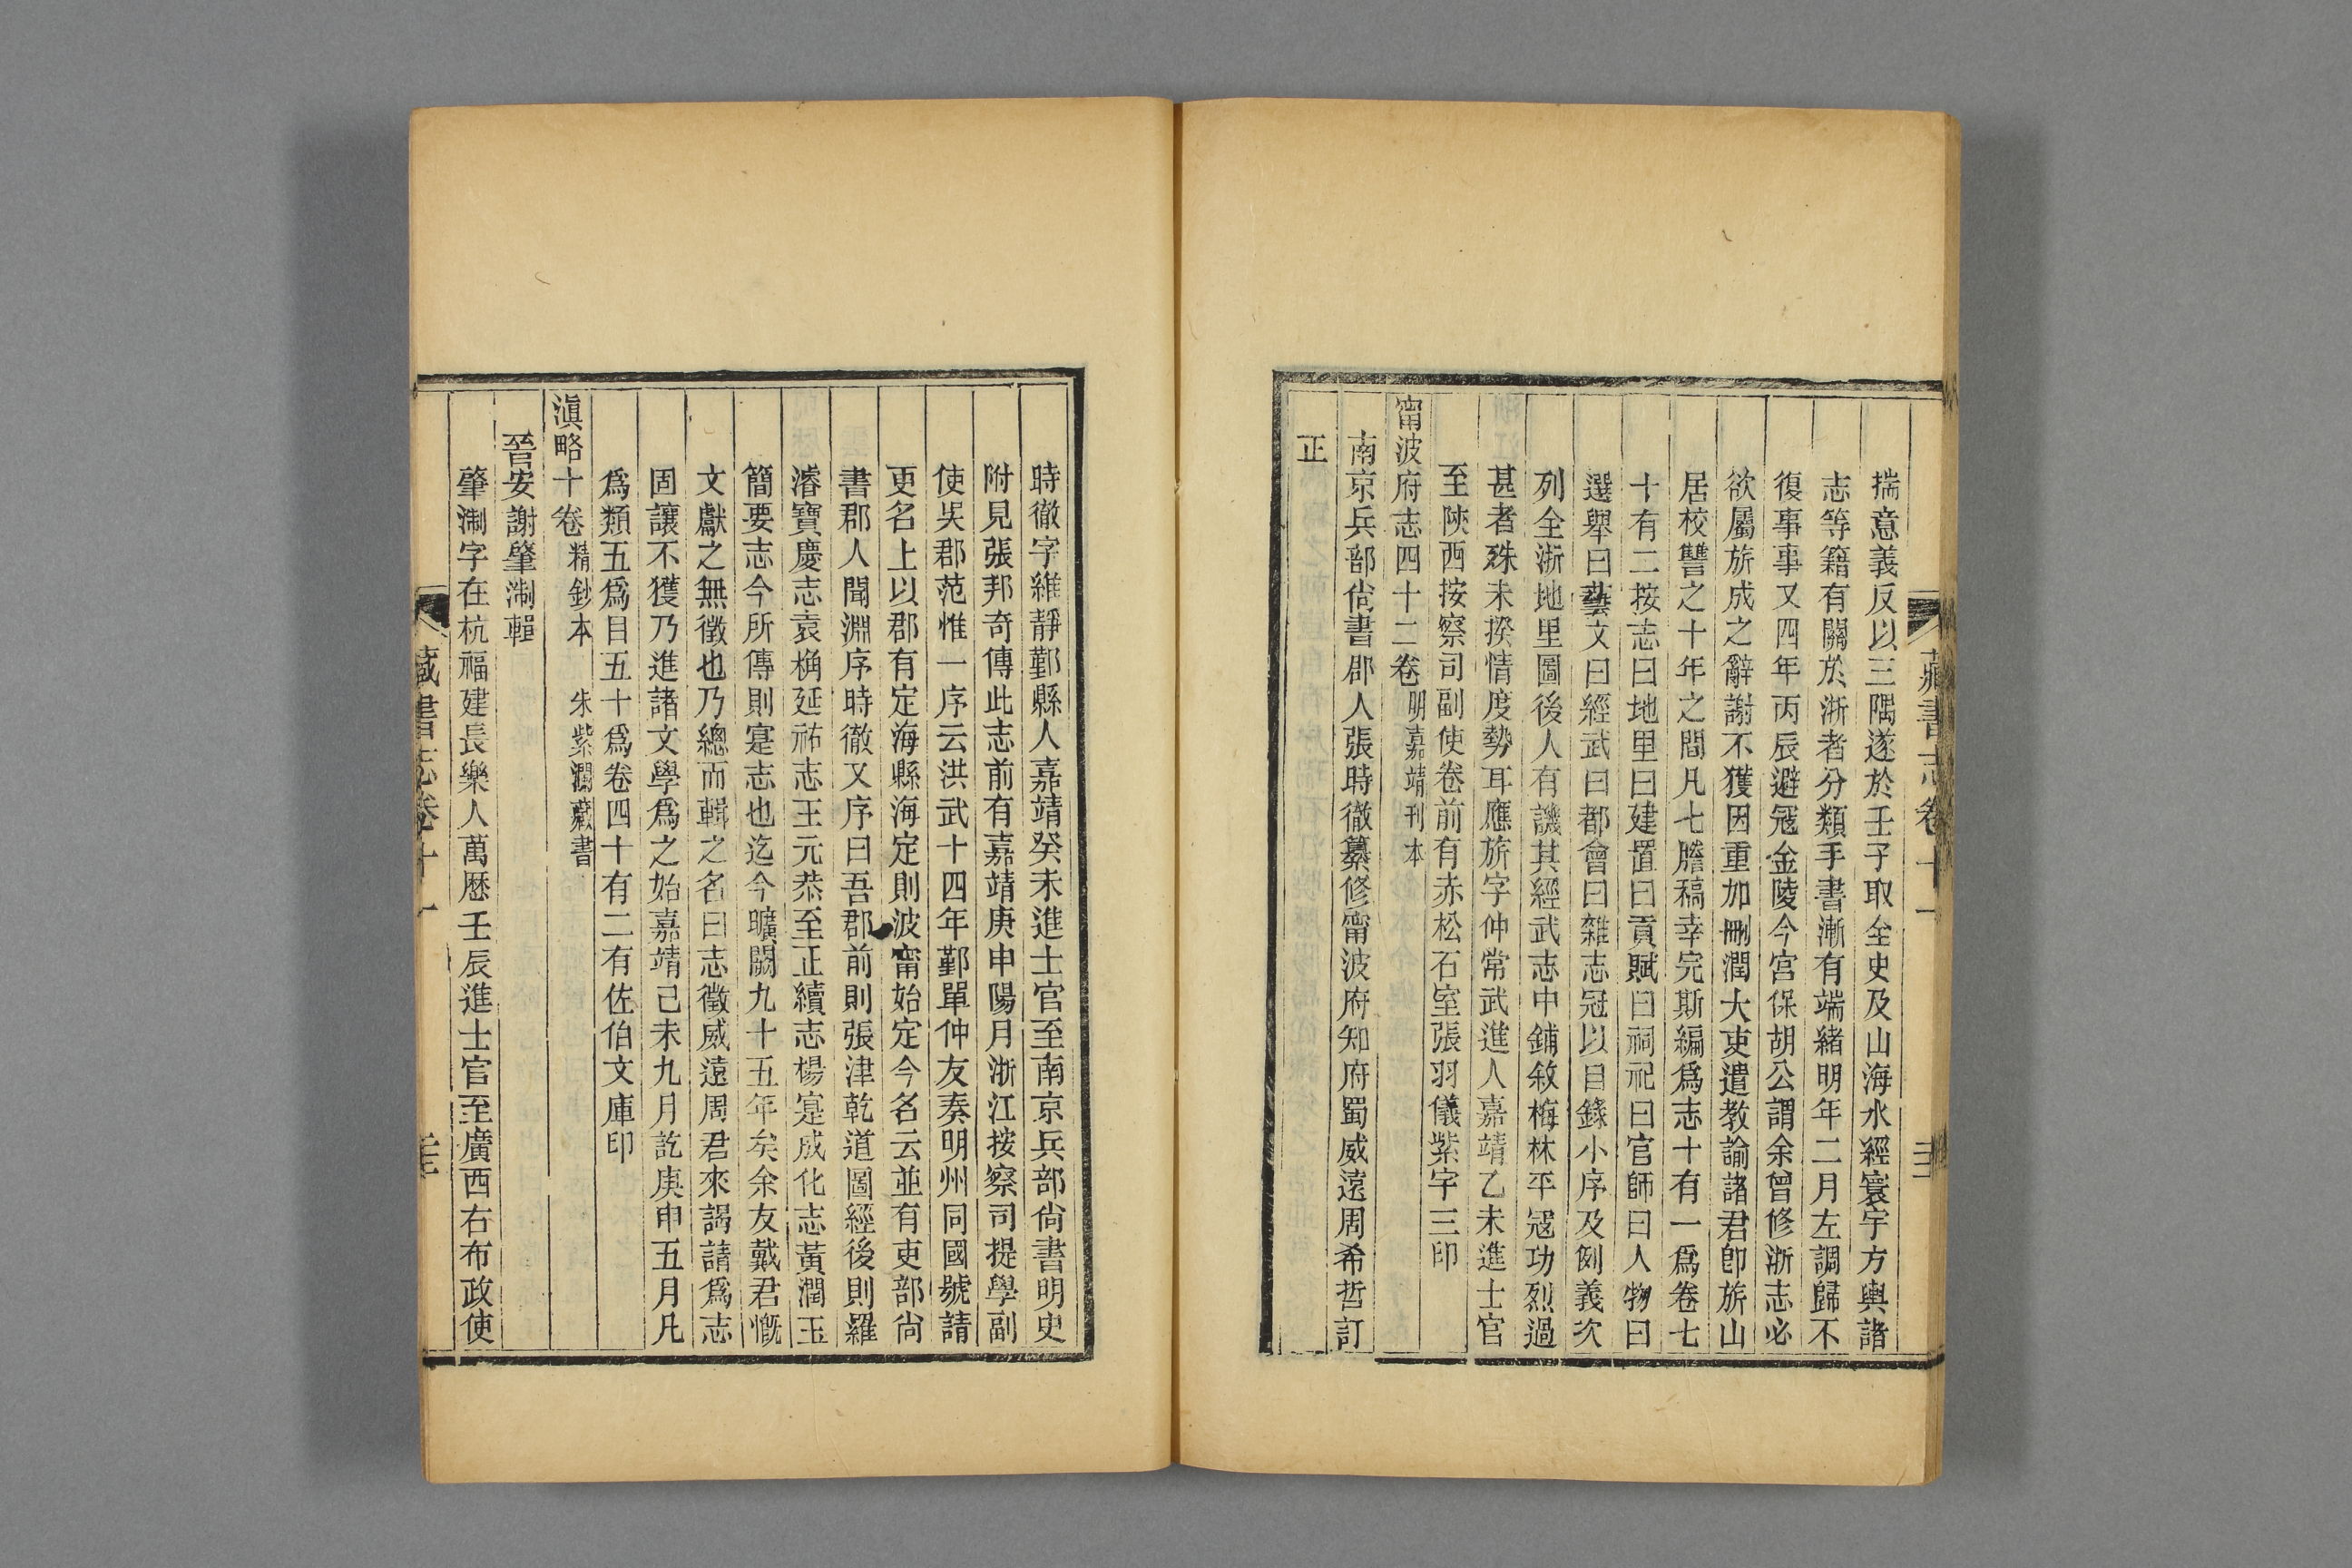 藏書志卷十一
揣意義反以三隅遂於壬子取全史及山海水經寰宇方輿諸
志等籍有關於浙者分類手書漸有端緒明年二月左調歸不
復事事又四年丙辰避寇金陵今宮保胡公謂余曾修浙志必
欲屬旂成之辭謝不獲因重加刪潤大吏遣教諭諸君卽旂山
居校讐之十年之間凡七謄稿幸完斯編爲志十有一爲卷七
十有二按志曰地里曰建置曰貢賦曰祠祀曰官師曰人物曰
選舉曰藝文曰經武曰都會曰雜志冠以目錄小序及例義次
列全浙地里圖後人有譏其經武志中鋪敘梅林平寇功烈過
甚者殊未揆情度勢耳應旂字仲常武進人嘉靖乙未進士官
至陝西按察司副使卷前有赤松石室張羽儀紫宇三印
甯波府志四十二卷明嘉靖刊本
南京兵部尙書郡人張時徹纂修甯波府知府蜀威遠周希哲訂
正
時徹字維靜鄞縣人嘉靖癸未進士官至南京兵部尙書明史
附見張邦奇傳此志前有嘉靖庚申陽月浙江按察司提學副
使吳郡范惟一序云洪武十四年鄞單仲友奏明州同國號請
更名上以郡有定海縣海定則波甯始定今名云並有吏部尙
書郡人聞淵序時徹又序曰吾郡前則張津乾道圖經後則羅
濬寶慶志袁桷延祐志王元恭至正續志楊寔成化志黃潤玉
簡要志今所傳則寔志也迄今曠闕九十五年矣余友戴君慨
文獻之無徵也乃總而輯之名曰志徵威遠周君來謁請爲志
固讓不獲乃進諸文學爲之始嘉靖己未九月訖庚申五月凡
爲類五爲目五十爲卷四十有二有佐伯文庫印
滇略十卷精鈔本 朱紫瀾藏書
晉安謝肇淛輯
肇淛字在杭福建長樂人萬歷壬辰進士官至廣西右布政使
藏書志卷十一